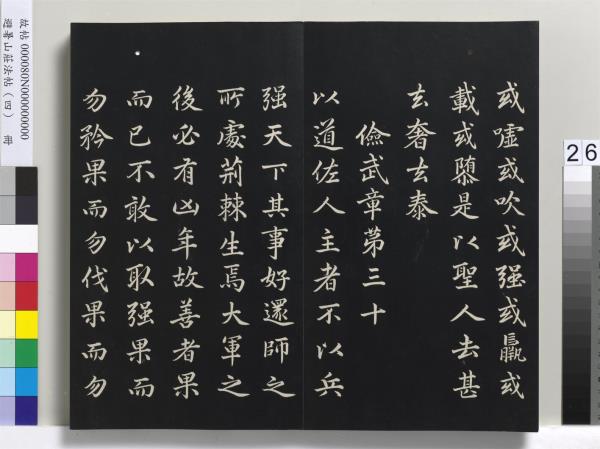 或噓或吹或强或羸或
載或隳是以聖人去甚
去奢去泰
儉武章第三十
以道佐人主者不以兵
强天下其事好還師之
所處荆棘生焉大軍之
後必有凶年故善者果
而已不敢以取强果而
勿矜果而勿伐果而勿
故帖 000080N000000000
避暑山莊法帖（四） 冊
26